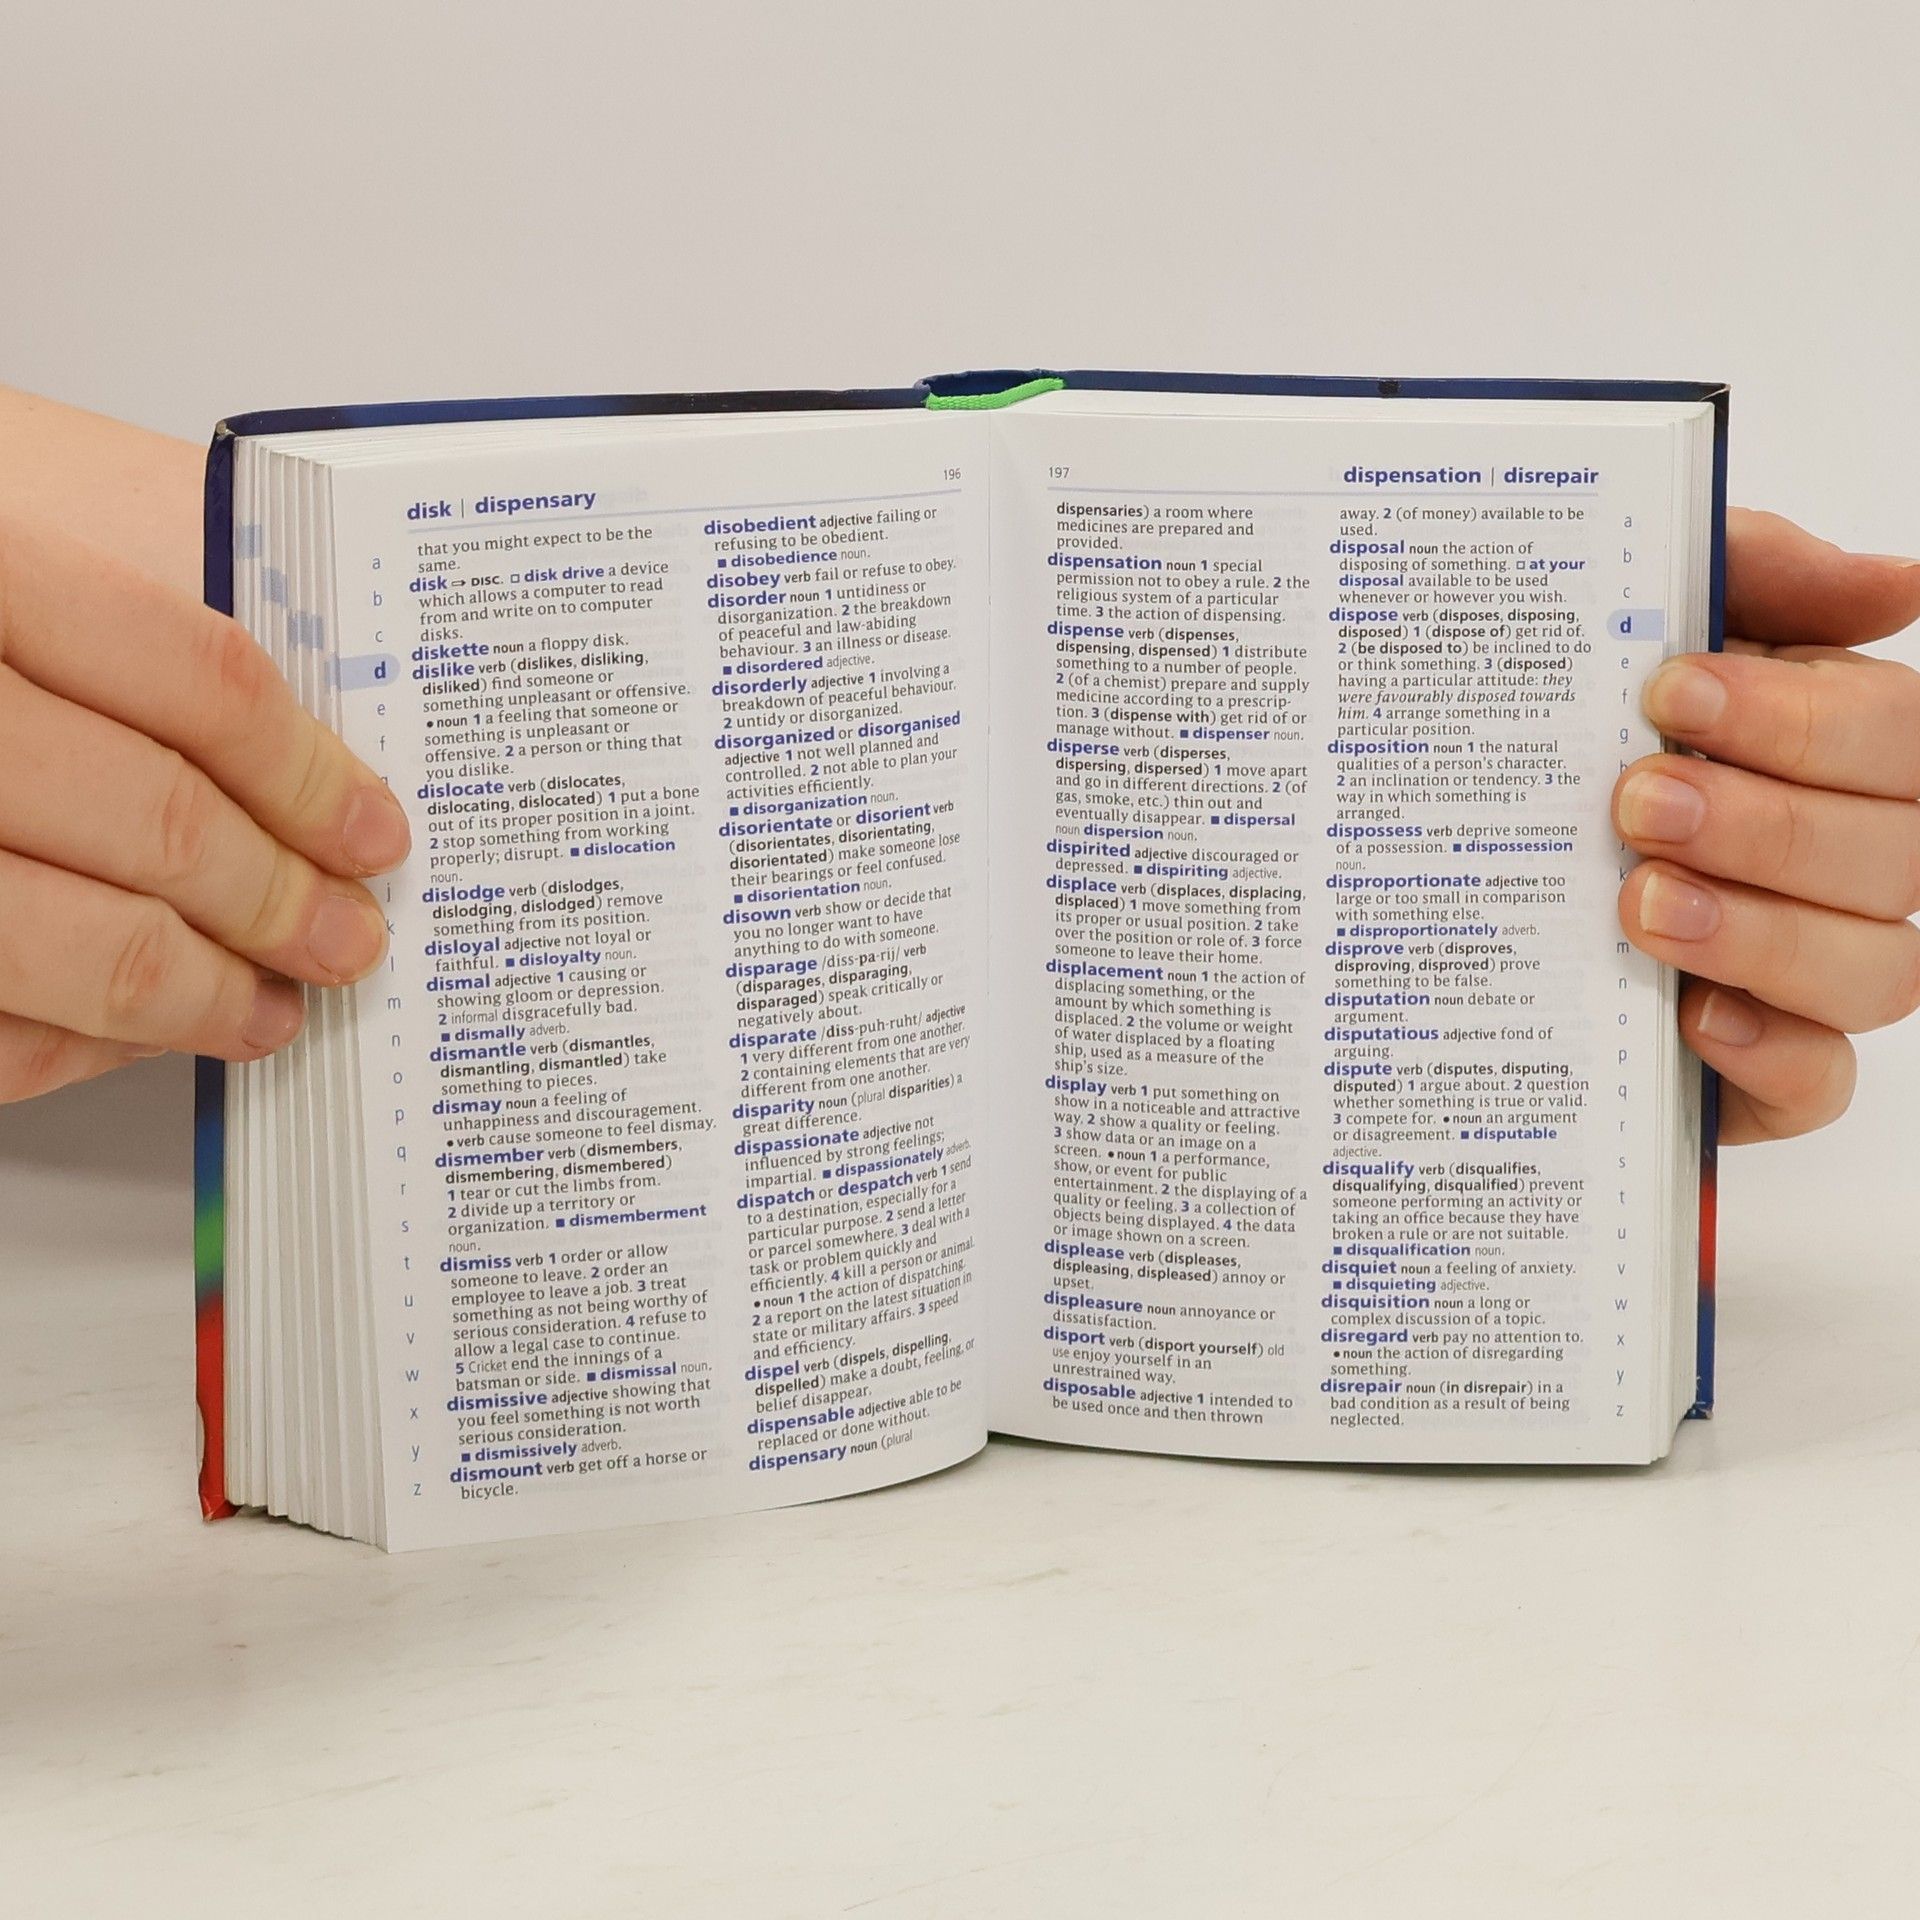 disk | dispensary
196
that you might expect to be the
same.
disk ⇨ DISC. □ disk drive a device
which allows a computer to read
from and write on to computer
disks.
diskette noun a floppy disk.
dislike verb (dislikes, disliking,
disliked) find someone or
something unpleasant or offensive.
• noun 1 a feeling that someone or
something is unpleasant or
offensive. 2 a person or thing that
you dislike.
dislocate verb (dislocates,
dislocating, dislocated) 1 put a bone
out of its proper position in a joint.
2 stop something from working
properly; disrupt. ■ dislocation
noun.
dislodge verb (dislodges,
dislodging, dislodged) remove
something from its position.
disloyal adjective not loyal or
faithful. ■ disloyalty noun.
dismal adjective 1 causing or
showing gloom or depression.
2 informal disgracefully bad.
■ dismally adverb.
dismantle verb (dismantles,
dismantling, dismantled) take
something to pieces.
dismay noun a feeling of
unhappiness and discouragement.
• verb cause someone to feel dismay.
dismember verb (dismembers,
dismembering, dismembered)
1 tear or cut the limbs from.
2 divide up a territory or
organization. ■ dismemberment
noun.
dismiss verb 1 order or allow
someone to leave. 2 order an
employee to leave a job. 3 treat
something as not being worthy of
serious consideration. 4 refuse to
allow a legal case to continue.
5 Cricket end the innings of a
batsman or side. ■ dismissal noun.
dismissive adjective showing that
you feel something is not worth
serious consideration.
■ dismissively adverb.
dismount verb get off a horse or
bicycle.
disobedient adjective failing or
refusing to be obedient.
■ disobedience noun.
disobey verb fail or refuse to obey.
disorder noun 1 untidiness or
disorganization. 2 the breakdown
of peaceful and law-abiding
behaviour. 3 an illness or disease.
■ disordered adjective.
disorderly adjective 1 involving a
breakdown of peaceful behaviour.
2 untidy or disorganized.
disorganized or disorganised
adjective 1 not well planned and
controlled. 2 not able to plan your
activities efficiently.
■ disorganization noun.
disorientate or disorient verb
(disorientates, disorientating,
disorientated) make someone lose
their bearings or feel confused.
■ disorientation noun.
disown verb show or decide that
you no longer want to have
anything to do with someone.
disparage /diss-pa-rij/ verb
(disparages, disparaging,
disparaged) speak critically or
negatively about.
disparate /diss-puh-ruht/ adjective
1 very different from one another.
2 containing elements that are very
different from one another.
disparity noun (plural disparities) a
great difference.
dispassionate adjective not
influenced by strong feelings;
impartial. ■ dispassionately adverb.
dispatch or despatch verb 1 send
to a destination, especially for a
particular purpose. 2 send a letter
or parcel somewhere. 3 deal with a
task or problem quickly and
efficiently. 4 kill a person or animal.
• noun 1 the action of dispatching.
2 a report on the latest situation in
state or military affairs. 3 speed
and efficiency.
dispel verb (dispels, dispelling,
dispelled) make a doubt, feeling, or
belief disappear.
dispensable adjective able to be
replaced or done without.
dispensary noun (plural
a
b
c
d
e
f
j
k
l
m
n
o
p
q
r
s
t
u
v
w
x
y
z
197
dispensation | disrepair
dispensaries) a room where
medicines are prepared and
provided.
dispensation noun 1 special
permission not to obey a rule. 2 the
religious system of a particular
time. 3 the action of dispensing.
dispense verb (dispenses,
dispensing, dispensed) 1 distribute
something to a number of people.
2 (of a chemist) prepare and supply
medicine according to a prescrip-
tion. 3 (dispense with) get rid of or
manage without. ■ dispenser noun.
disperse verb (disperses,
dispersing, dispersed) 1 move apart
and go in different directions. 2 (of
gas, smoke, etc.) thin out and
eventually disappear. ■ dispersal
noun dispersion noun.
dispirited adjective discouraged or
depressed. ■ dispiriting adjective.
displace verb (displaces, displacing,
displaced) 1 move something from
its proper or usual position. 2 take
over the position or role of. 3 force
someone to leave their home.
displacement noun 1 the action of
displacing something, or the
amount by which something is
displaced. 2 the volume or weight
of water displaced by a floating
ship, used as a measure of the
ship's size.
display verb 1 put something on
show in a noticeable and attractive
way. 2 show a quality or feeling.
3 show data or an image on a
screen. • noun 1 a performance,
show, or event for public
entertainment. 2 the displaying of a
quality or feeling. 3 a collection of
objects being displayed. 4 the data
or image shown on a screen.
displease verb (displeases,
displeasing, displeased) annoy or
upset.
displeasure noun annoyance or
dissatisfaction.
disport verb (disport yourself) old
use enjoy yourself in an
unrestrained way.
disposable adjective 1 intended to
be used once and then thrown
away. 2 (of money) available to be
used.
disposal noun the action of
disposing of something. □ at your
disposal available to be used
whenever or however you wish.
dispose verb (disposes, disposing,
disposed) 1 (dispose of) get rid of.
2 (be disposed to) be inclined to do
or think something. 3 (disposed)
having a particular attitude: they
were favourably disposed towards
him. 4 arrange something in a
particular position.
disposition noun 1 the natural
qualities of a person's character.
2 an inclination or tendency. 3 the
way in which something is
arranged.
dispossess verb deprive someone
of a possession. ■ dispossession
noun.
disproportionate adjective too
large or too small in comparison
with something else.
■ disproportionately adverb.
disprove verb (disproves,
disproving, disproved) prove
something to be false.
disputation noun debate or
argument.
disputatious adjective fond of
arguing.
dispute verb (disputes, disputing,
disputed) 1 argue about. 2 question
whether something is true or valid.
3 compete for. • noun an argument
or disagreement. ■ disputable
adjective.
disqualify verb (disqualifies,
disqualifying, disqualified) prevent
someone performing an activity or
taking an office because they have
broken a rule or are not suitable.
■ disqualification noun.
disquiet noun a feeling of anxiety.
■ disquieting adjective.
disquisition noun a long or
complex discussion of a topic.
disregard verb pay no attention to.
• noun the action of disregarding
something.
disrepair noun (in disrepair) in a
bad condition as a result of being
neglected.
a
b
c
d
e
f
g
k
m
n
o
p
q
r
s
t
u
v
w
x
y
z